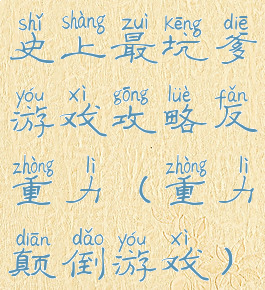 shǐ shàng zuì kēng diē
史上最坑爹
yóu xì gōng lüè fǎn
游戏攻略反
zhòng lì zhòng lì
重力（重力
diān dǎo yóu xì
颠倒游戏）